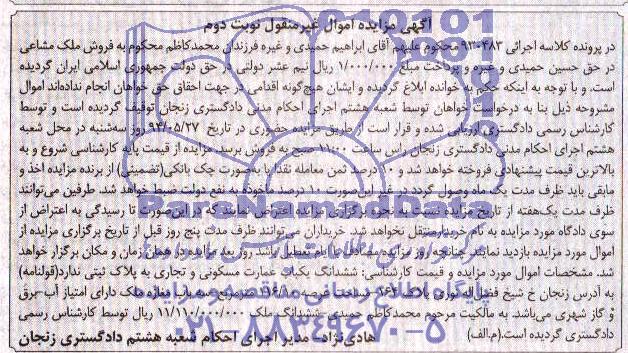 آگهی مزایده اموال غیرمنقول نوبت دوم
در پرونده کلاسه اجرائی ۹۳۰۴۸۳ محکوم علیهم آقای ابراهیم حمیدی و غیره فرزندان محمدکاظم محکوم به فروش ملک مشاعی
در حق حسین حمیدی و غیره و پرداخت مبلغ ۱/۰۰۰/۰۰۰ ریال نیم عشر دولتی در حق دولت جمهوری اسلامی ایران گردیده
است. و با توجه به اینکه حکم به خوانده ابلاغ گردیده و ایشان هیچ‌گونه اقدامی در جهت احقاق حق خواهان انجام نداده‌اند اموال
مشروحه ذیل بنا به درخواست خواهان توسط شعبه هشتم اجرای احکام مدنی دادگستری زنجان توقیف گردیده است و توسط
کارشناس رسمی دادگستری ارزیابی شده و قرار است از طریق مزایده حضوری در تاریخ ۹۴/۰۵/۲۷ روز سه‌شنبه در محل شعبه
هشتم اجرای احکام مدنی دادگستری زنجان راس ساعت ۱۱:۰۰ صبح به فروش برسد مزایده از قیمت پایه کارشناسی شروع و به
بالاترین قیمت پیشنهادی فروخته خواهد شد و ۱۰ درصد ثمن معامله نقدا یا به‌صورت چک بانکی(تضمینی) از برنده مزایده اخذ و
مابقی باید ظرف مدت یک ماه وصول گردد در غیر این‌صورت ۱۰ درصد ماخوذه به نفع دولت ضبط خواهد شد. طرفین می‌توانند
ظرف مدت یک‌هفته از تاریخ مزایده نسبت به نحوه برگزاری مزایده اعتراض نمایند که در این‌صورت تا رسیدگی به اعتراض از
سوی دادگاه مورد مزایده به نام خریدار منتقل نخواهد شد. خریداران می‌توانند ظرف مدت پنج روز قبل از تاریخ برگزاری مزایده از
اموال مورد مزایده بازدید نمایند چنانچه روز مزایده مصادف با ایام تعطیل باشد روز بعد مزایده در همان زمان و مکان برگزار خواهد
شد. مشخصات اموال مورد مزایده و قیمت کارشناسی: ششدانگ یکباب عمارت مسکونی و تجاری به پلاک ثبتی ندارد(قولنامه)
به آدرس زنجان خ شیخ فضل‌اله نوری پلاک مساحت باب مغازه ملک دارای امتیاز آب-برق
و گاز شهری می‌باشد. به مالکیت مرحوم محمدکاظم حمیدی ششدانگ ملک ۱۱/۱۱۰/۰۰۰/۰۰۰ ریال توسط کارشناس رسمی
دادگستری گردیده است.(م.الف) هادی‌نژاد- مدیر اجرای احکام شعبه هشتم دادگستری زنجان
ParsNamadData
پایگاه اطلاع رسانی مناقصه و مزایده
۰۲۱-۸۸۳۴۹۶۷۰-۵